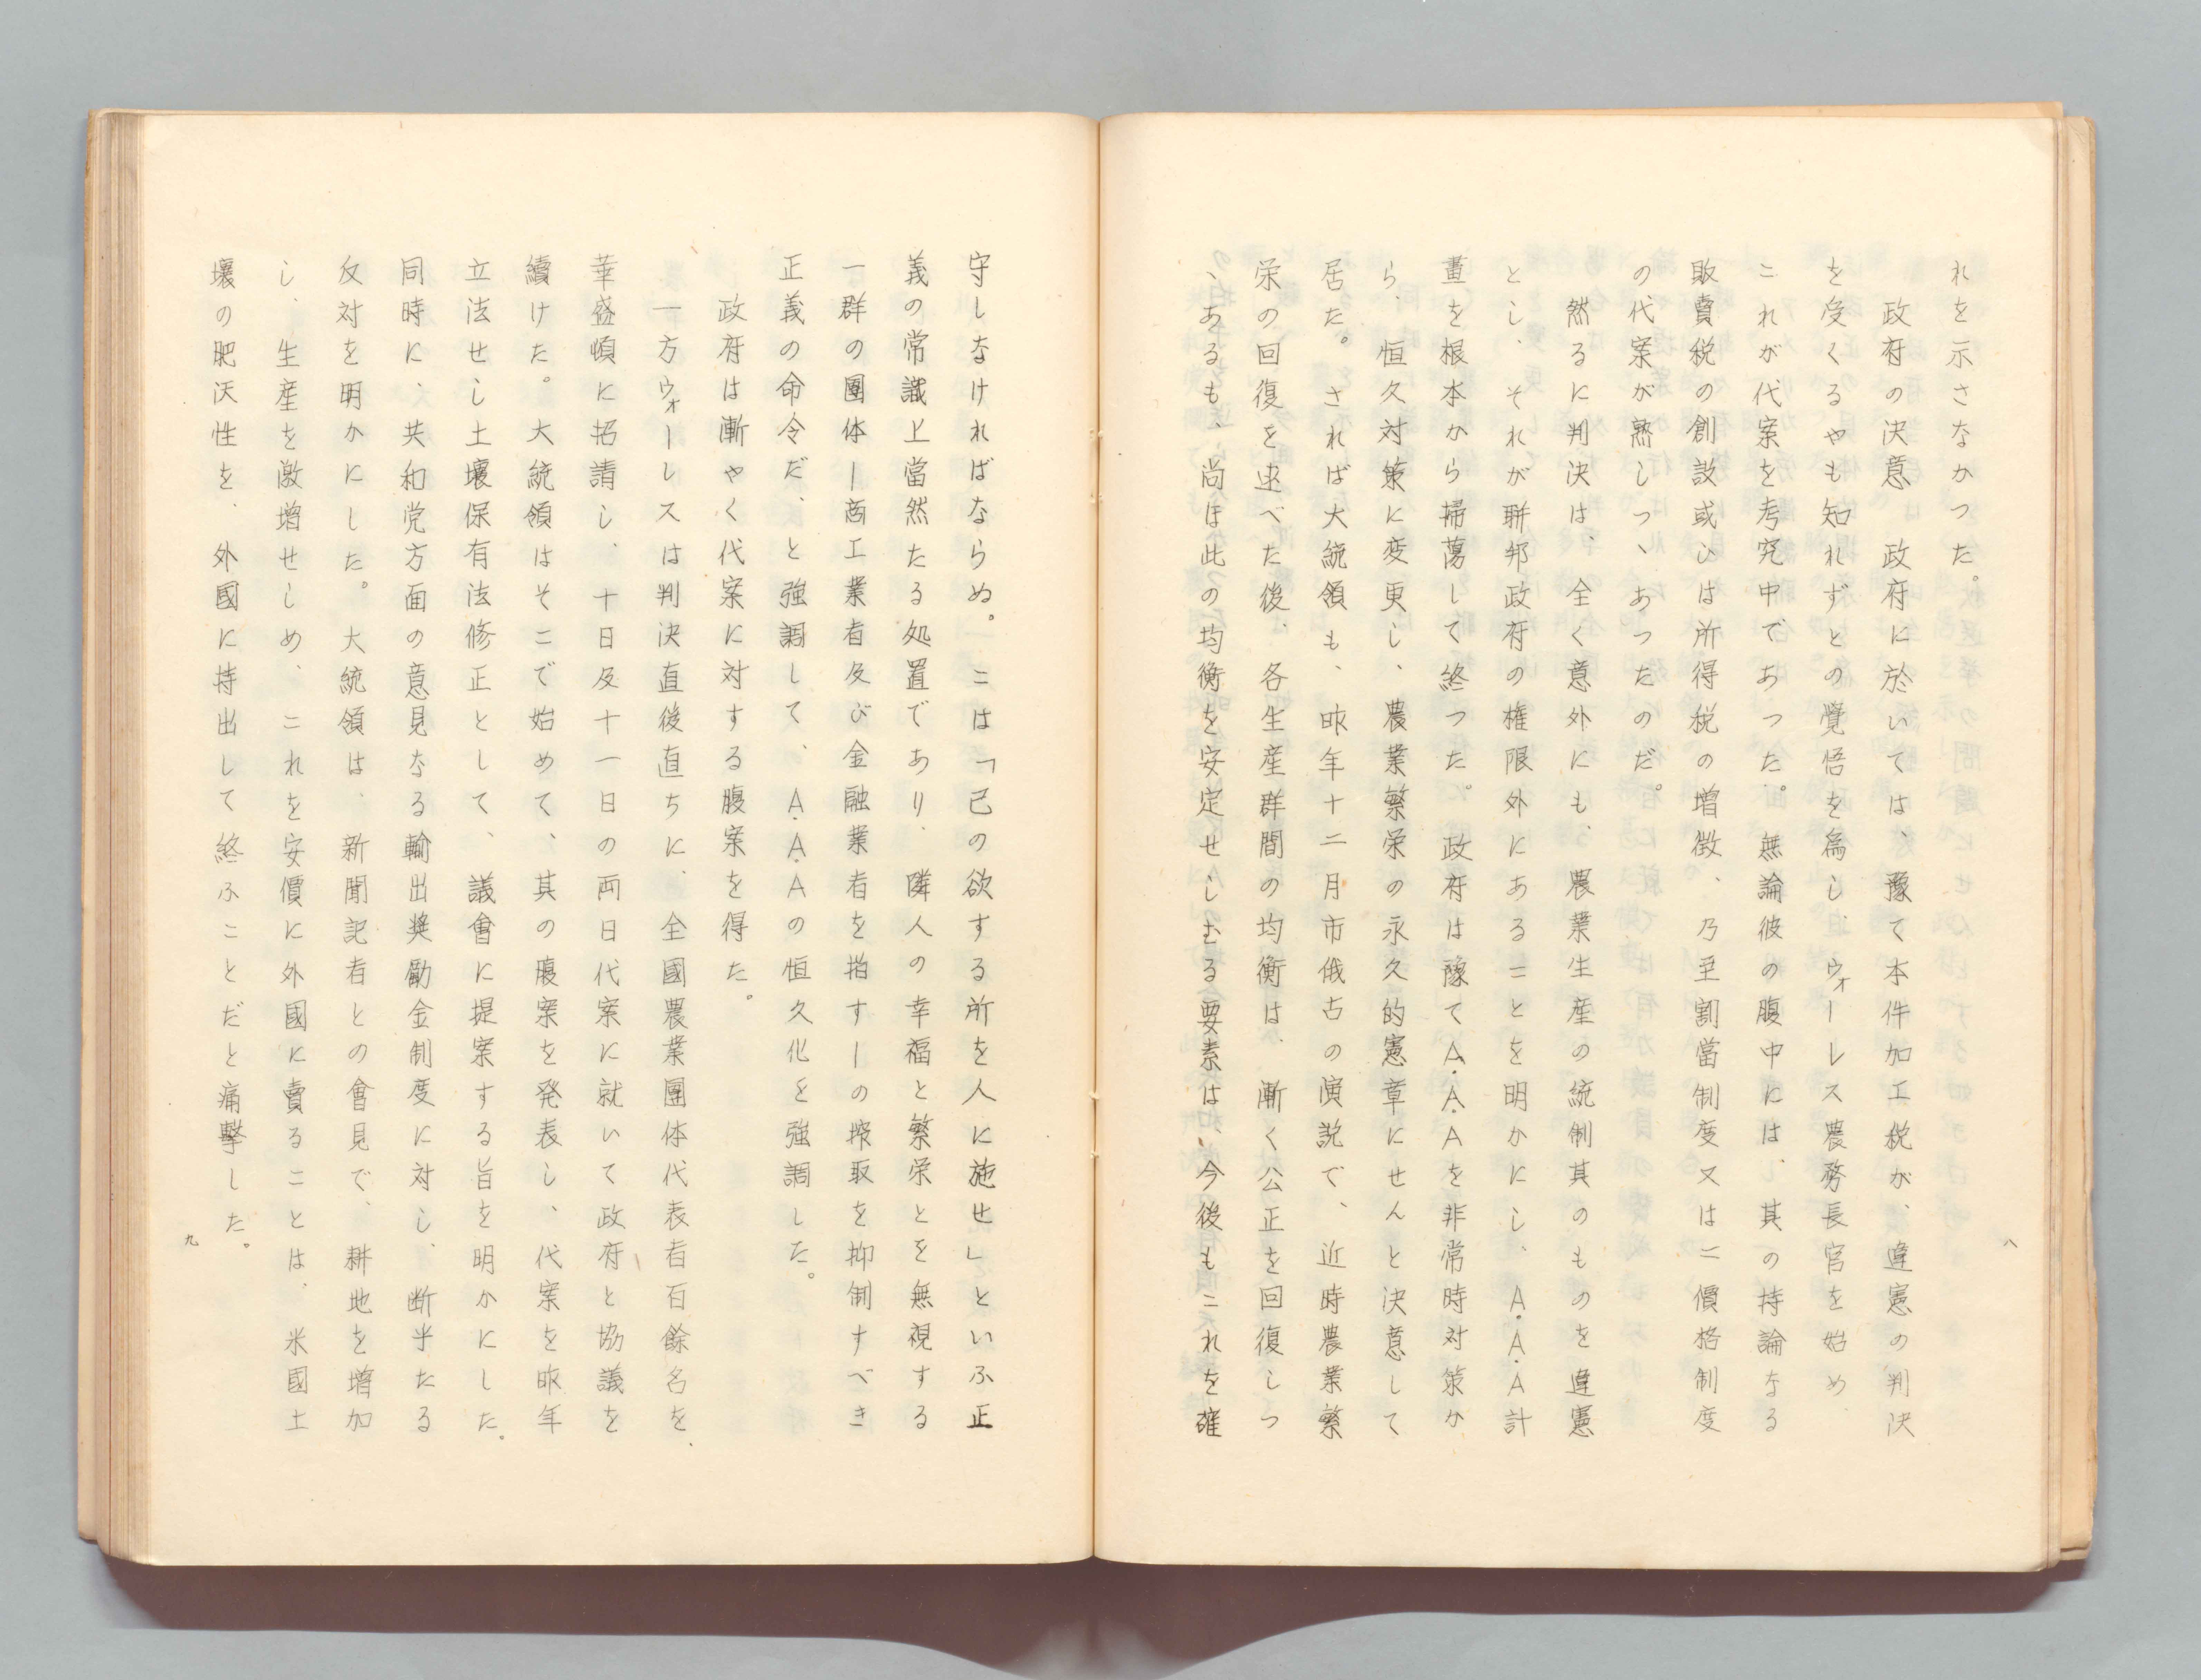 れを示さなかつた。
政府の決意　政府に於いては、豫て本件加工税が、違憲の判決
を受くるやも知れずとの覺悟を為し、ウォーレス農務長官を始め、
これが代案を考究中であつた。無論彼の腹中には、其の持論なる
販賣税の創設或ひは所得税の増徴、乃至割當制度又は二價格制度
の代案が熟しつゝあつたのだ。
然るに判決は、全く意外にも、農業生産の統制其のものを違憲
とし、それが聯邦政府の権限外にあることを明かにし、A.A.A計
畫を根本から掃蕩して終つた。政府は豫てA.A.Aを非常時対策か
ら、恒久対策に変更し、農業繁栄の永久的憲章にせんと決意して
居た。されば大統領も、昨年十二月市俄古の演説で、近時農業繁
栄の回復を逑べた後、各生産群間の均衡は、漸く公正を回復しつ
ゝあるも、尚ほ此の均衡を安定せしむる要素は、今後もこれを確
八
守しなければならぬ。こは「己の欲する所を人に施せ」といふ正
義の常識上當然たる処置であり、隣人の幸福と繁栄とを無視する
一群の團体ー商工業者及び金融業者を指すーの搾取を抑制すべき
正義の命令だ、と強調して、A.A.Aの恒久化を強調した。
政府は漸やく代案に対する腹案を得た。
一方ウォーレスは判決直後直ちに、全國農業團体代表者百餘名を、
華盛頓に招請し、十日及十一日の両日代案に就いて政府と協議を
續けた。大統領はそこで始めて、其の腹案を発表し、代案を昨年
立法せし土壤保有法修正として、議會に提案する旨を明かにした。
同時に、共和党方面の意見なる輸出奬勵金制度に対し、断乎たる
反対を明かにした。大統領は、新聞記者との會見で、耕地を増加
し、生産を激増せしめ、これを安價に外國に賣ることは、米國土
壤の肥沃性を、外國に持出して終ふことだと痛擊した。
九